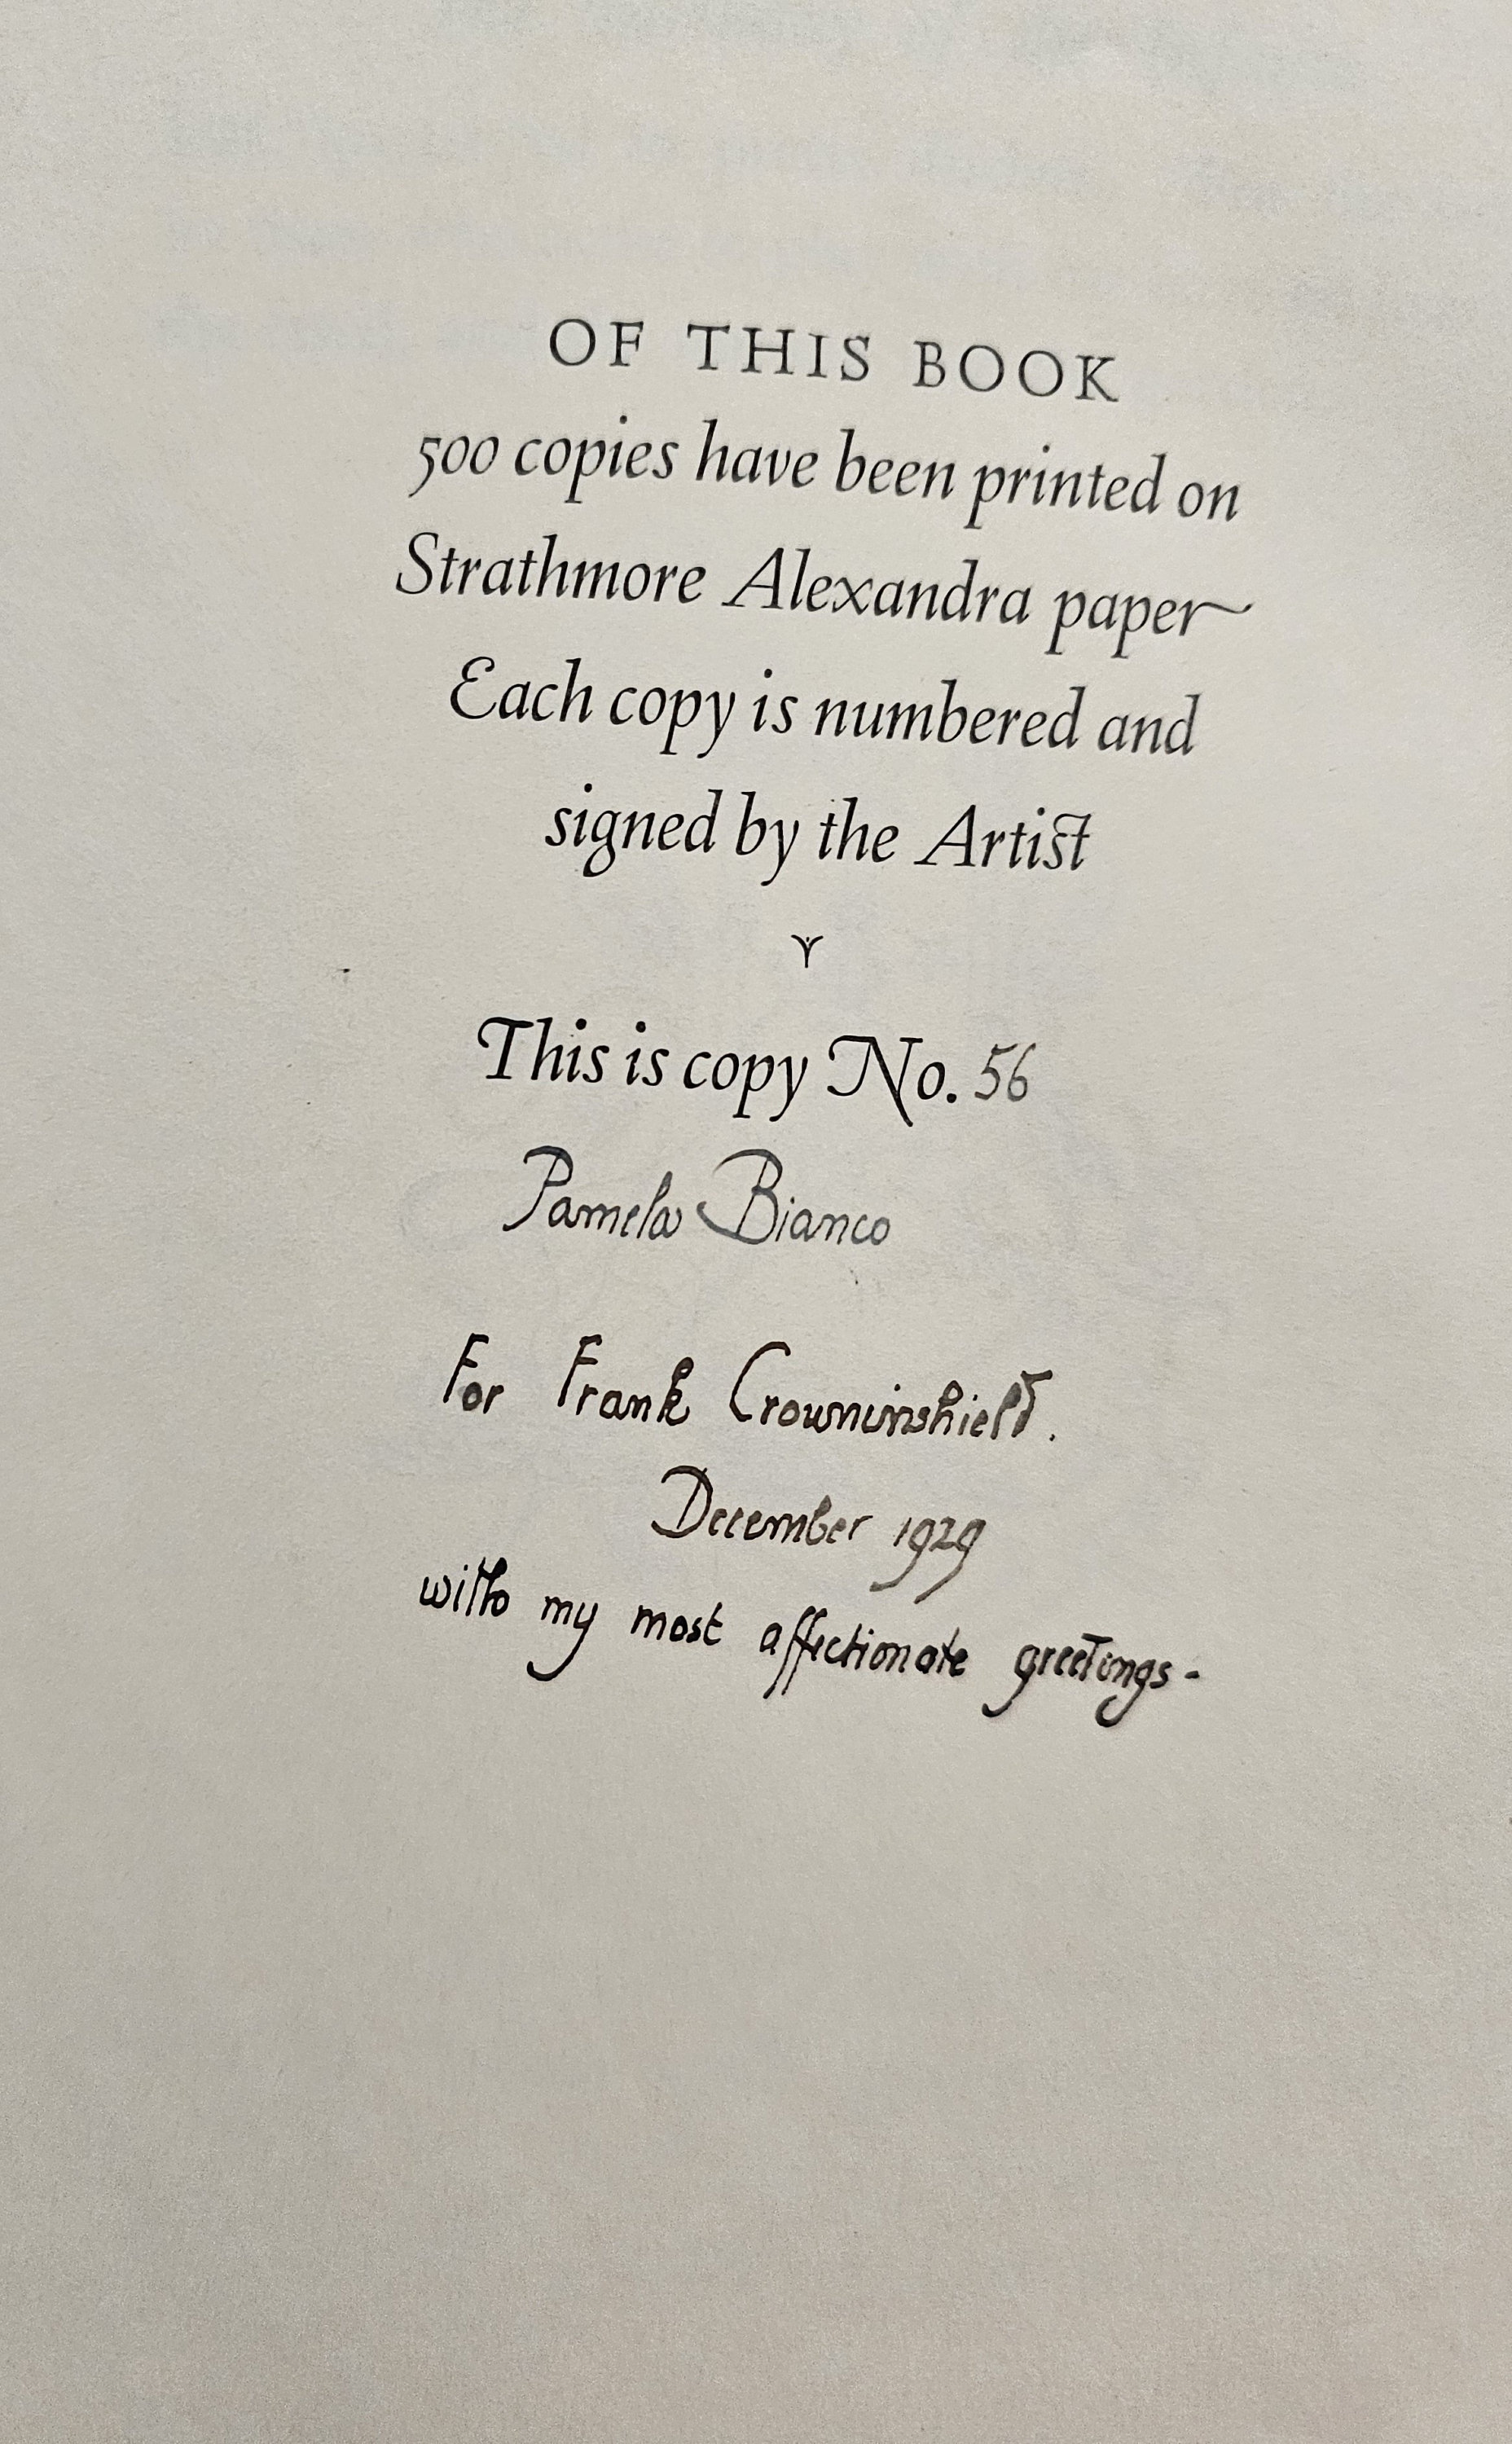 OF THIS BOOK
500 copies have been printed on
Strathmore Alexandra paper
Each copy is numbered and
signed by the Artist
This is copy No. 56
Pamela Bianco
For Frank Crowninshield.
December 1929
with my most affectionate greetings-